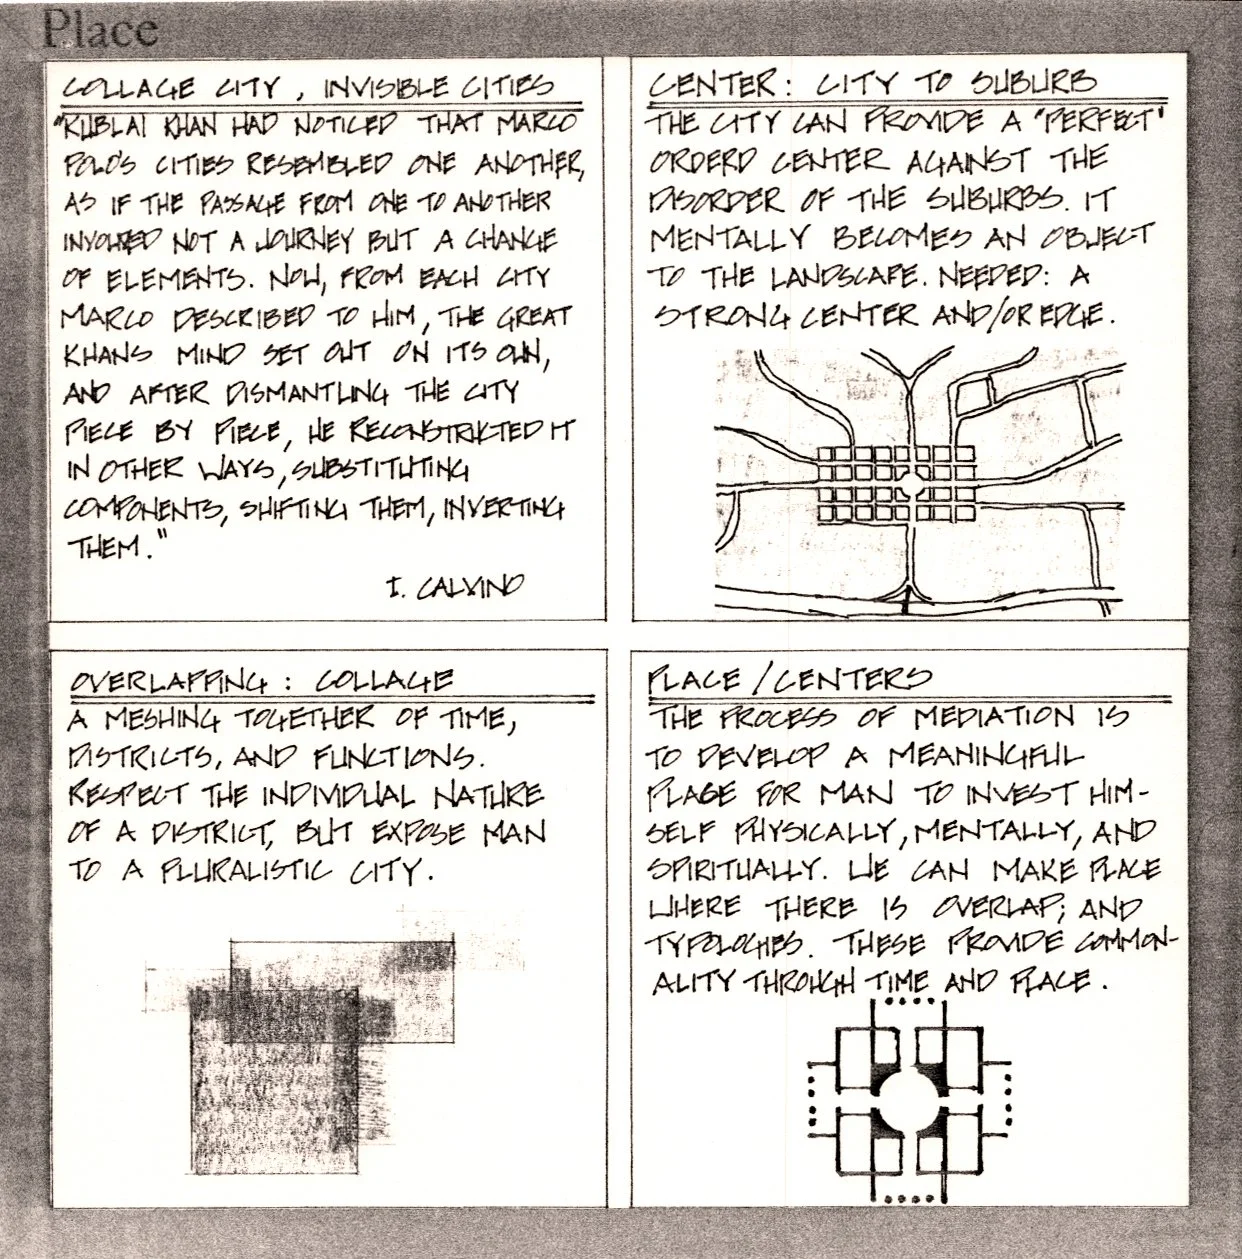 Place
COLLAGE CITY, INVISIBLE CITIES
"KUBLAI KHAN HAD NOTICED THAT MARCO
POLO'S CITIES RESEMBLED ONE ANOTHER,
AS IF THE PASSAGE FROM ONE TO ANOTHER
INVOLVED NOT A JOURNEY BUT A CHANGE
OF ELEMENTS. NOW, FROM EACH CITY
MARCO DESCRIBED TO HIM, THE GREAT
KHANS MIND SET OUT ON ITS OWN,
AND AFTER DISMANTLING THE CITY
PIECE BY PIECE, HE RECONSTRUCTED IT
IN OTHER WAYS, SUBSTITUTING
COMPONENTS, SHIFTING THEM, INVERTING
THEM."
I. CALVINO
CENTER: CITY TO SUBURB
THE CITY CAN PROVIDE A "PERFECT"
ORDERD CENTER AGAINST THE
DISORDER OF THE SUBURBS. IT
MENTALLY BECOMES AN OBJECT
TO THE LANDSCAPE. NEEDED: A
STRONG CENTER AND/OR EDGE.
OVERLAPPING: COLLAGE
A MESHING TOGETHER OF TIME,
DISTRICTS, AND FUNCTIONS.
RESPECT THE INDIVIDUAL NATURE
OF A DISTRICT, BUT EXPOSE MAN
TO A PLURALISTIC CITY.
PLACE/CENTERS
THE PROCESS OF MEDIATION IS
TO DEVELOP A MEANINGFUL
PLACE FOR MAN TO INVEST HIM-
SELF PHYSICALLY, MENTALLY, AND
SPIRITUALLY. WE CAN MAKE PLACE
WHERE THERE IS OVERLAP; AND
TYPOLOGIES. THESE PROVIDE COMMON-
ALITY THROUGH TIME AND PLACE.